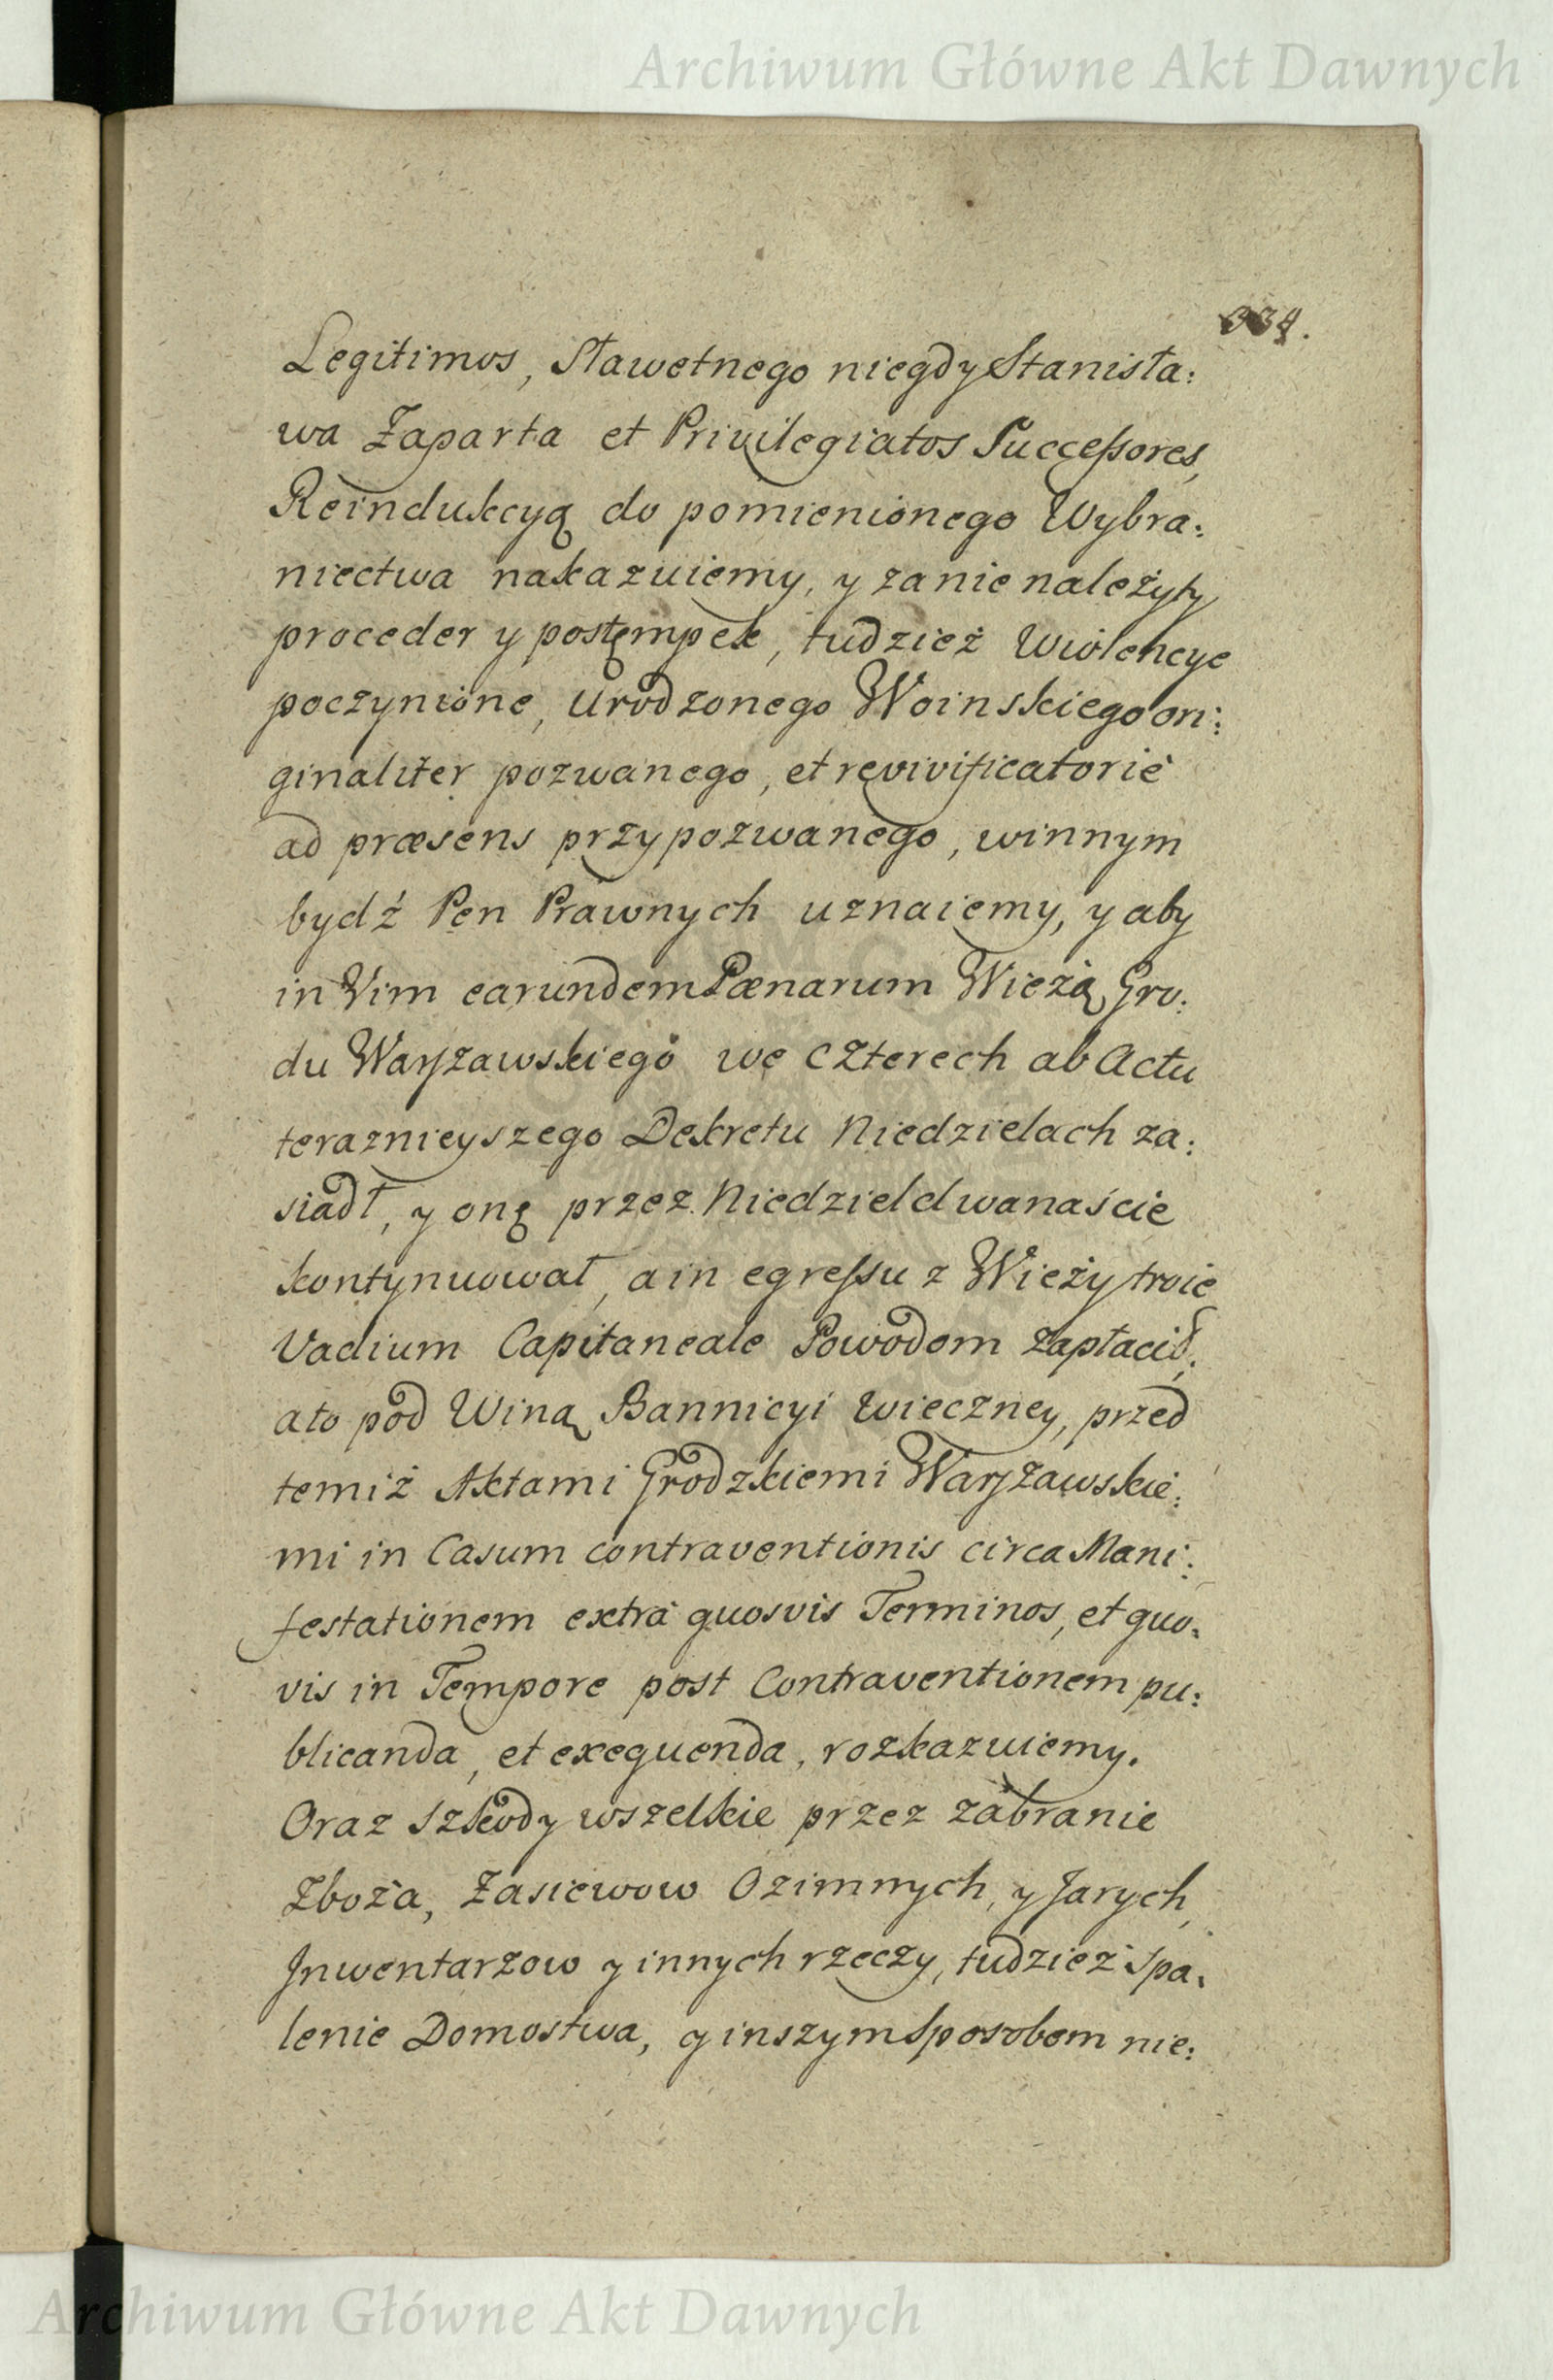 Archiwum Główne Akt Dawnych
334.
Legitimos, Sławetnego niegdy Stanisła:
wa Zaparta et Privilegiatos Successores,
Reindukcyą do pomienionego Wybra:
niectwa nakazuiemy, y za nie należyty
proceder y postęmpek, tudzież Wiolencye
poczynione, Urodzonego Woinskiego ori:
ginaliter pozwanego, et revivificatorie
ad præsens przypozwanego, winnym
bydź Pen Prawnych uznaiemy, y aby
in Vim earundem Pænarum Wieżą Gro:
du Warszawskiego we czterech ab Actu
teraznieyszego Dekretu Niedzielach za:
siadł, y onę przez Niedziel dwanaście
kontynuował, a in egressu z Wieży troie
Vadium Capitaneale Powodom zapłacił,
a to pod Winą Bannicyi wieczney, przed
temiż Aktami Grodzkiemi Warszawskie:
mi in Casum contraventionis circa Mani:
festationem extrà quosvis Terminos, et quo:
vis in Tempore post Contraventionem pu:
blicanda, et exequenda, rozkazuiemy.
Oraz szkody wszelkie przez zabranie
Zboża, Zasiewow Ozimnych, y Jarych,
Jnwentarzow y innych rzeczy, tudzież spa:
lenie Domostwa, y inszym sposobem nie:
Archiwum Główne Akt Dawnych